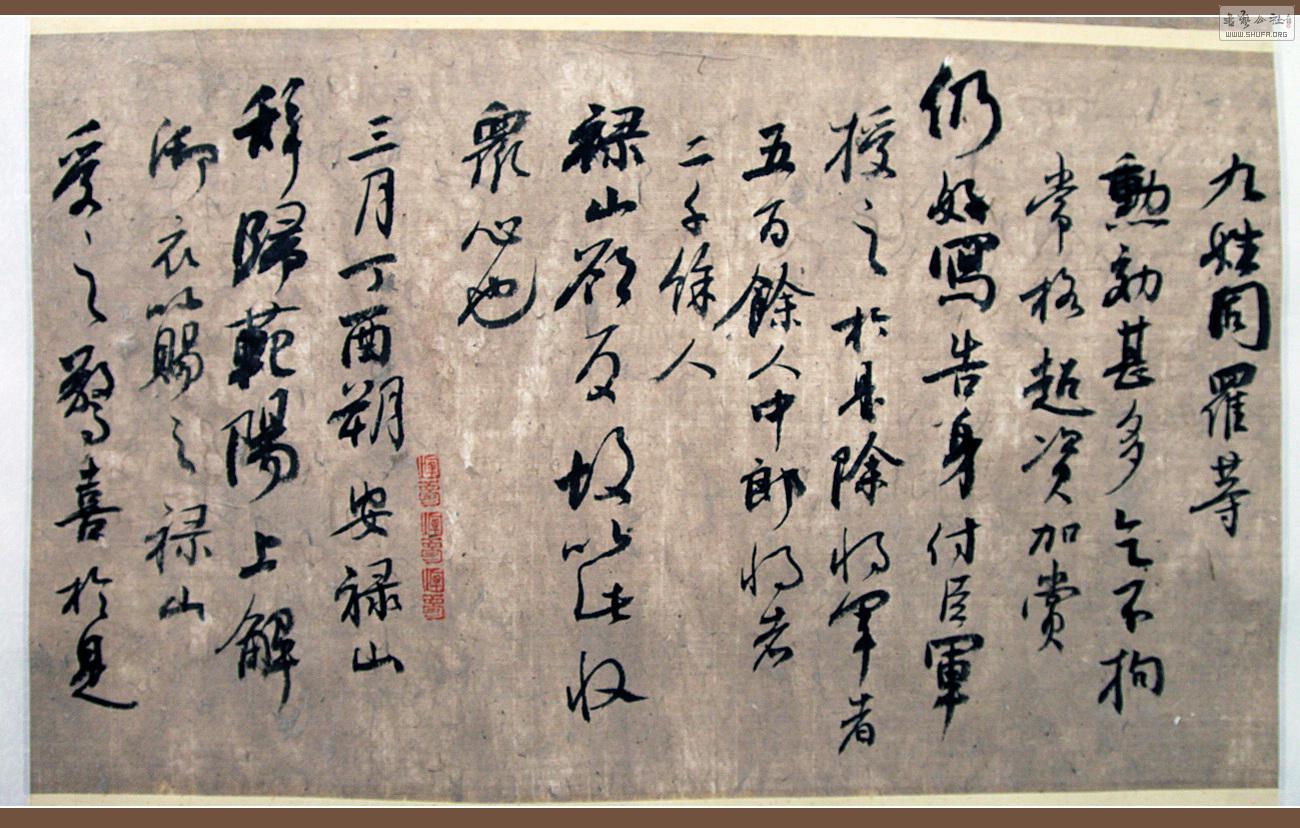 九姓同羅等
勳効甚多乞不拘
常格超资加赏
仍好寫告身付臣軍
授之於是除将軍者
五百餘人中郎将者
二千餘人
禄山欲反故以此收
眾心也
三月丁酉朔安禄山
辞歸范陽上解
御衣以賜之禄山
受之驚喜於是
WWW.SHUFA.ORG